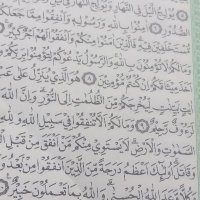 يُولِجُ ٱلَّيۡلَ فِي ٱلنَّهَارِ وَيُولِجُ ٱلنَّهَارَ فِي
بِٱللَّهِ وَرَسُولِهِۦ وَأَنفِقُواْ مِمَّا جَعَلَكُ
مُّسۡتَخۡلَفِينَ فِيهِۖ فَٱلَّذِينَ ءَامَنُواْ مِنكُمۡ وَأَنفَقُواْ لَهُمۡ أَجۡرٞ
وَمَا لَكُمۡ لَا تُؤۡمِنُونَ بِٱللَّهِ وَٱلرَّسُولُ يَدۡعُوكُمۡ لِتُؤۡمِنُواْ بِرَبِّكُمۡ
أَخَذَ مِيثَٰقَكُمۡ إِن كُنتُم مُّؤۡمِنِينَ ٨ هُوَ ٱلَّذِي يُنَزِّلُ عَلَىٰ
ءَايَٰتِۭ بَيِّنَٰتٖ لِّيُخۡرِجَكُم مِّنَ ٱلظُّلُمَٰتِ إِلَى ٱلنُّورِۚ وَإِنَّ ٱللَّهَ
لَرَءُوفٞ رَّحِيمٞ ٩ وَمَا لَكُمۡ أَلَّا تُنفِقُواْ فِي سَبِيلِ ٱللَّهِ
ٱلسَّمَٰوَٰتِ وَٱلۡأَرۡضِۚ لَا يَسۡتَوِي مِنكُم مَّنۡ أَنفَقَ مِن قَبۡلِ
وَقَٰتَلَۚ أُوْلَٰٓئِكَ أَعۡظَمُ دَرَجَةٗ مِّنَ ٱلَّذِينَ أَنفَقُواْ مِنۢ بَعۡدُ
وَكُلّٗا وَعَدَ ٱللَّهُ ٱلۡحُسۡنَىٰۚ وَٱللَّهُ بِمَا تَعۡمَلُونَ خَبِيرٞ